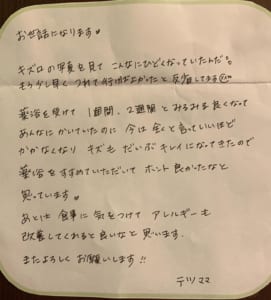 お世話になります
キズ口の写真を見て こんなにひどくなっていたんだ。
もう少し早く つれて行けばよかったと 反省してます
薬浴を受けて 1週間、2週間と みるみる良くなって
あんなにかいていたのに 今は全くと言っていいほど
かかなくなり キズも だいぶキレイになってきたので
薬浴をすすめていただいて ホント 良かったなと
思っています。
あとは 食事に 気をつけて アレルギーも
改善してくれると良いなと 思います.
またよろしく お願いします!!
テツママ